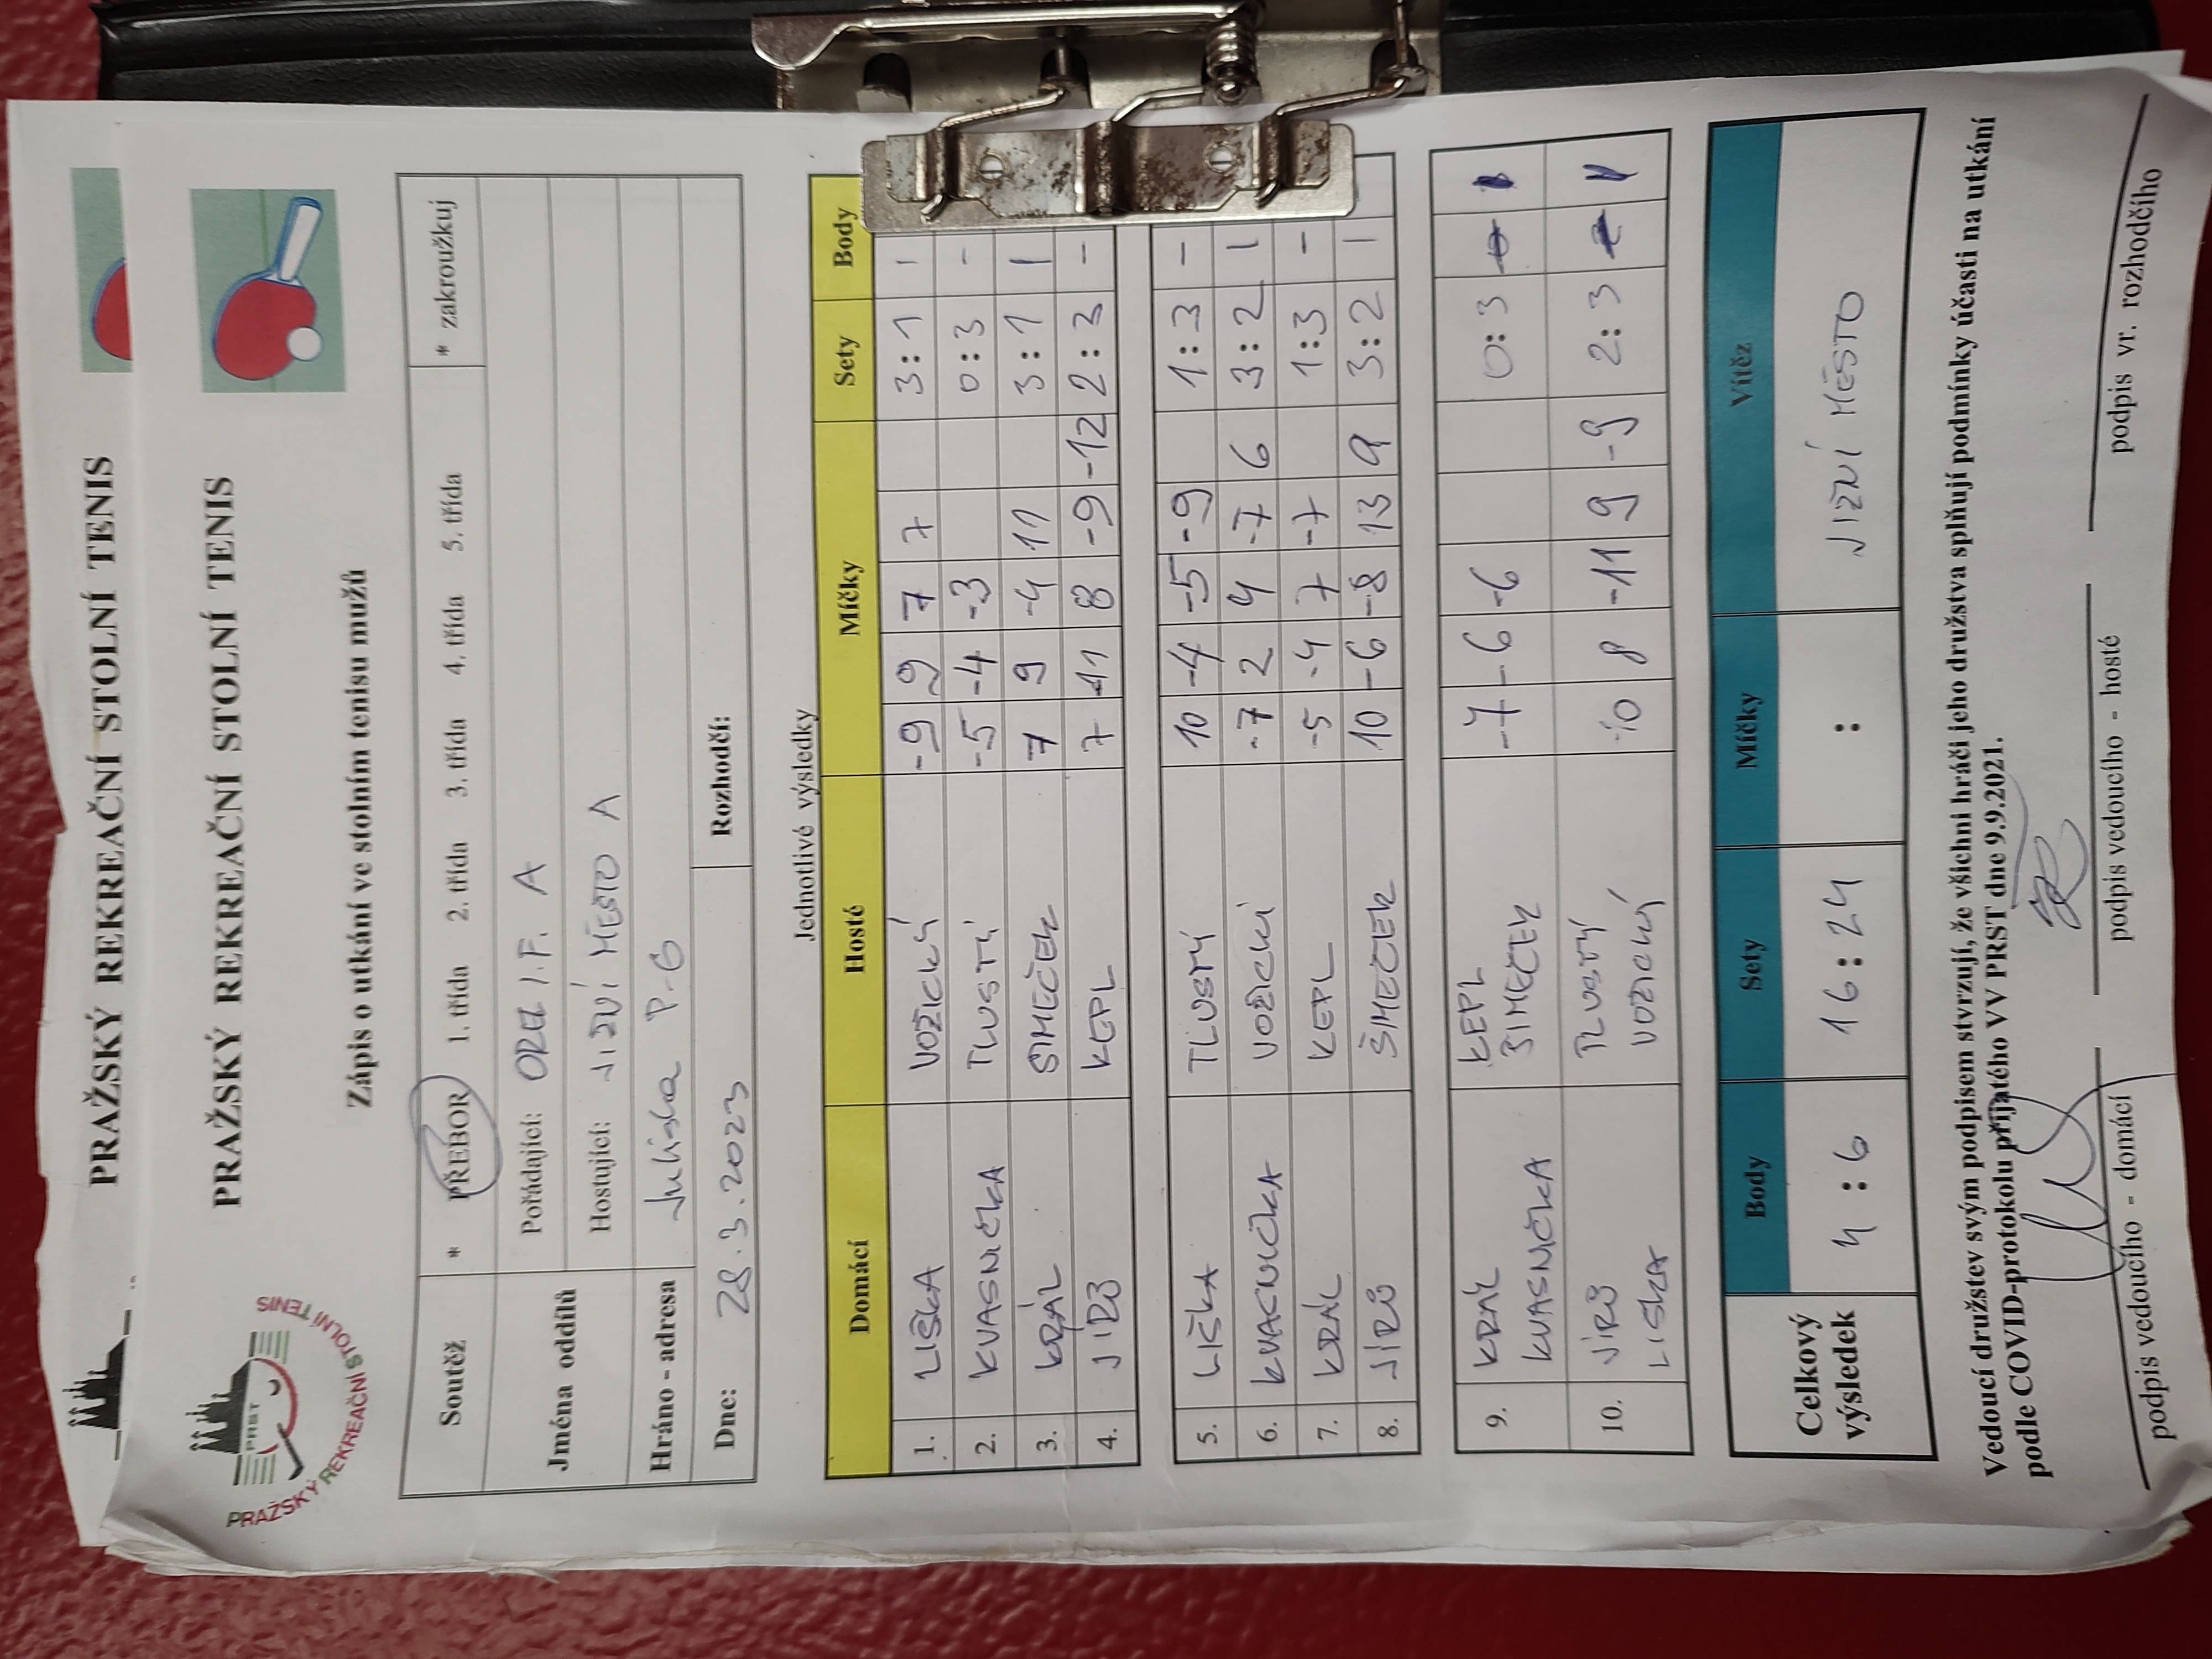 PRAŽSKÝ REKREAČNÍ STOLNÍ TENIS
PRAŽSKÝ REKREAČNÍ STOLNÍ TENIS
PRST
PRAŽSKÝ REKREAČNÍ STOLNÍ TENIS
Zápis o utkání ve stolním tenisu mužů
Soutěž * PŘEBOR 1. třída 2. třída 3. třída 4. třída 5. třída * zakroužkuj
Jména oddílů Pořádající: OREL I.F. A
Hostující: JIŽNÍ MĚSTO A
Hráno - adresa Juliska P-6
Dne: 28.3.2023 Rozhodčí:
Jednotlivé výsledky
Domácí Hosté Míčky Sety Body
1. LIŠKA VOŽICKÝ -9 9 7 7 3:1 1
2. KVASNIČKA TLUSTÝ -5 -4 -3 0:3 -
3. KRÁL SIMEČEK 7 9 -4 11 3:1 1
4. JIRŮ KEPL 7 -11 8 -9 -12 2:3 -
5. LIŠKA TLUSTÝ 10 -4 -5 -9 1:3 -
6. KVASNIČKA VOŽICKÝ -7 2 4 -7 6 3:2 1
7. KRÁL KEPL -5 -4 7 -7 1:3 -
8. JIRŮ ŠIMEČEK 10 -6 -8 13 9 3:2 1
9. KRÁL KEPL -7 -6 -6 0:3 1
KVASNIČKA ŠIMEČEK
10. JIRŮ TLUSTÝ -10 8 -11 9 -9 2:3 1
LISKA VOZICKÝ
Celkový výsledek Body Sety Míčky Vítěz
4:6 16:24 : JIŽNÍ MĚSTO
Vedoucí družstev svým podpisem stvrzují, že všichni hráči jeho družstva splňují podmínky účasti na utkání
podle COVID-protokolu přijatého VV PRST dne 9.9.2021.
podpis vedoucího - domácí podpis vedoucího - hosté podpis vr. rozhodčího